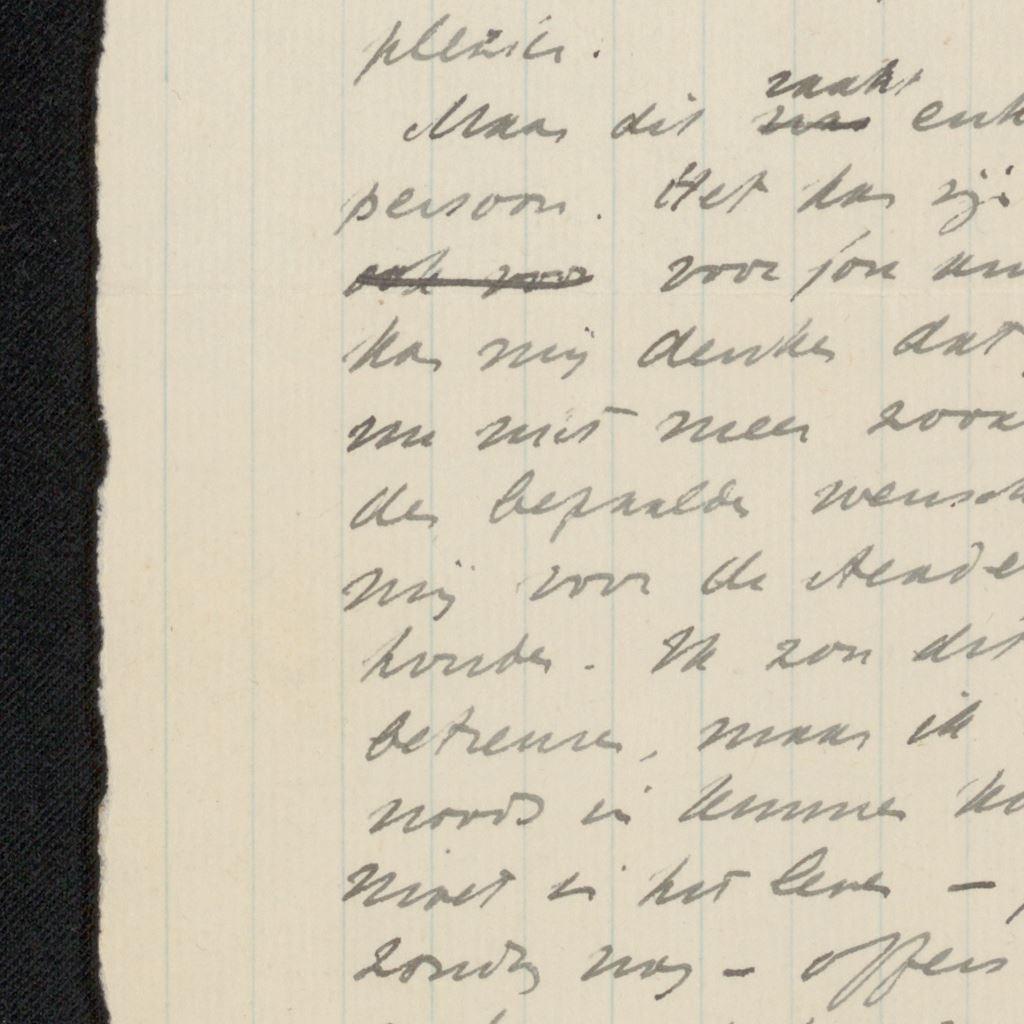 plezier.
raakt
Maar dit was enk
persoon. Het kan zijn
ook voor voor jou en
kan mij denken dat
nu niet meer zooa
den bepaalden wensch
mij voor de Acade
houden. Ik zou dit
betreuren, maar ik
noods in kunnen ko
moet in het leven —
zonder nog - offers